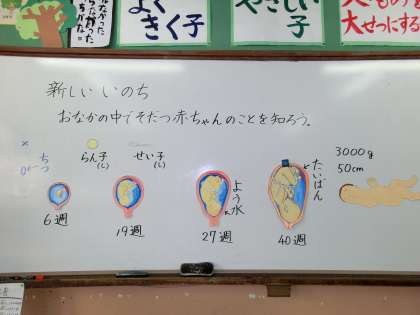 よく
きく子
やさしい
子
大せつにする
新しい いのち
おなかの中でそだつ赤ちゃんのことを知ろう。
らん子
せい子
たいばん
3000g
50cm
よう水
6週
19週
27週
40週